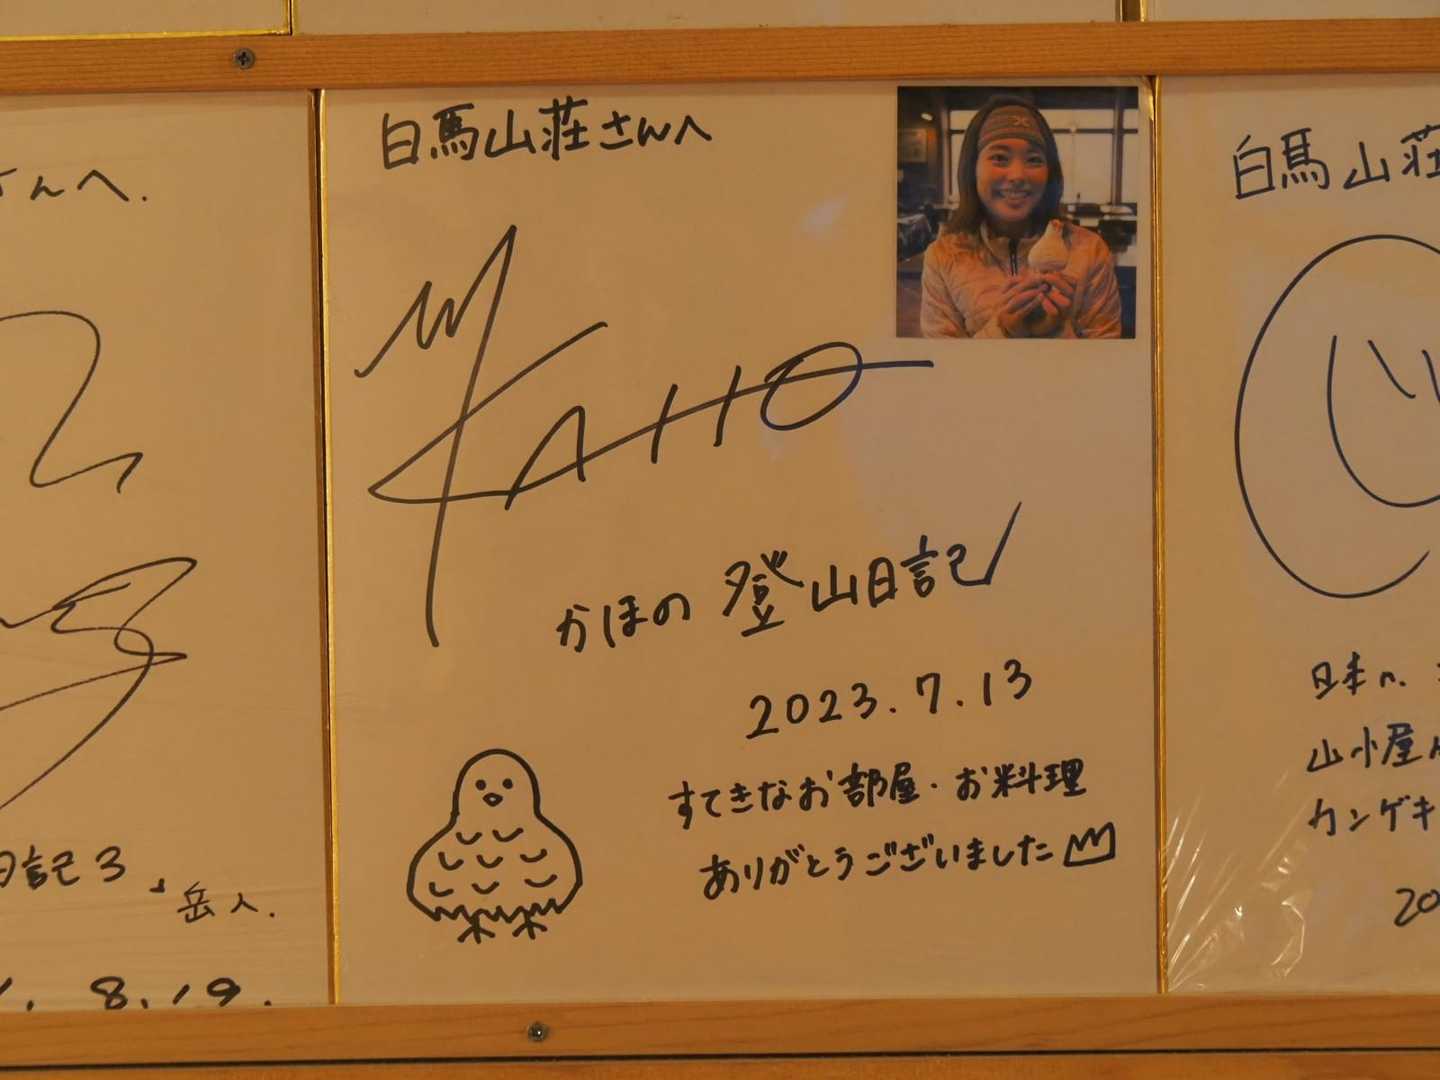 さんへ.
日記 3
岳人.
8.19.
白馬山荘さんへ
KAHO
かほの登山日記
2023.7.13
すてきなお部屋・お料理
ありがとうございました
白馬山荘
日本の
山小屋
カンゲキ
20